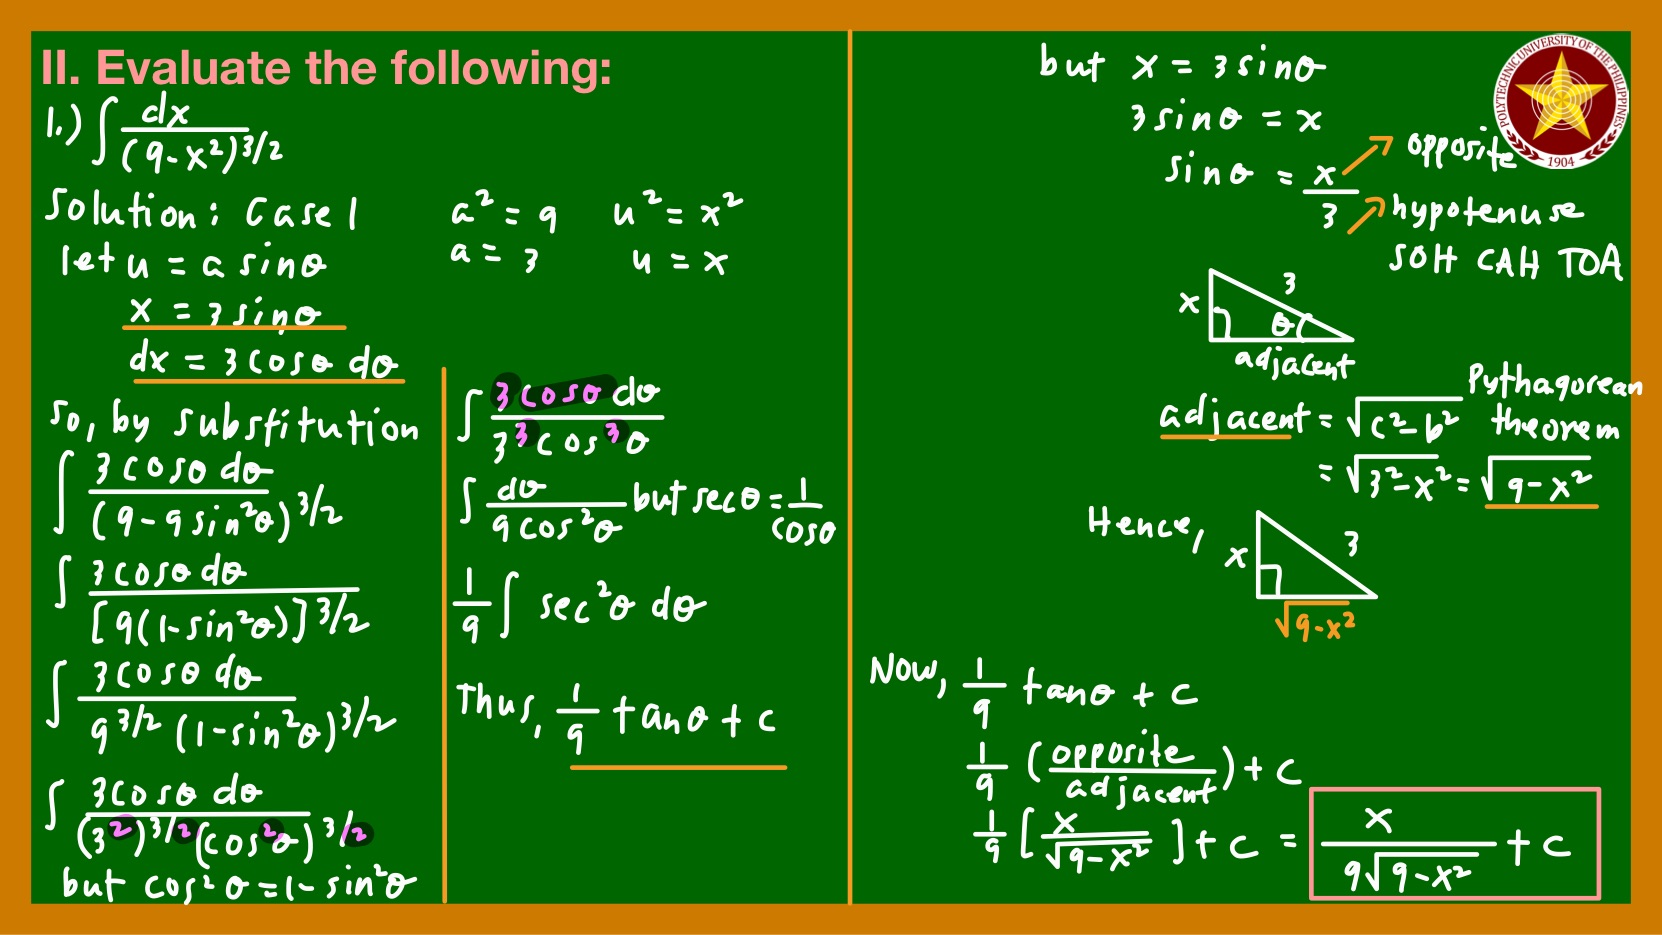 II. Evaluate the following:
1.) ∫ dx / (9-x²)^3/2
Solution: Case 1
a² = 9 u² = x²
let u = a sinθ
a = 3 u = x
x = 3 sinθ
dx = 3 cosθ dθ
so, by substitution
∫ 3 cosθ dθ / (9-9 sin²θ)^3/2
∫ 3 cosθ dθ / [9(1-sin²θ)]^3/2
∫ 3 cosθ dθ / 9^3/2 (1-sin²θ)^3/2
∫ 3 cosθ dθ / (3²)^3/2 (cos²θ)^3/2
but cos²θ = 1-sin²θ
∫ 3 cosθ dθ / 3³ cos³θ
∫ dθ / 9 cos²θ but secθ = 1/cosθ
1/9 ∫ sec²θ dθ
Thus, 1/9 tanθ + c
but x = 3 sinθ
3 sinθ = x
sinθ = x/3
opposite
hypotenuse
SOH CAH TOA
x 3 θ
adjacent
Pythagorean
theorem
adjacent = √c²-b²
= √3²-x² = √9-x²
Hence, x 3
√9-x²
Now, 1/9 tanθ + c
1/9 (opposite/adjacent) + c
1/9 [x/√9-x²] + c = x / 9√9-x² + c
POLYTECHNIC UNIVERSITY OF THE PHILIPPINES
1904